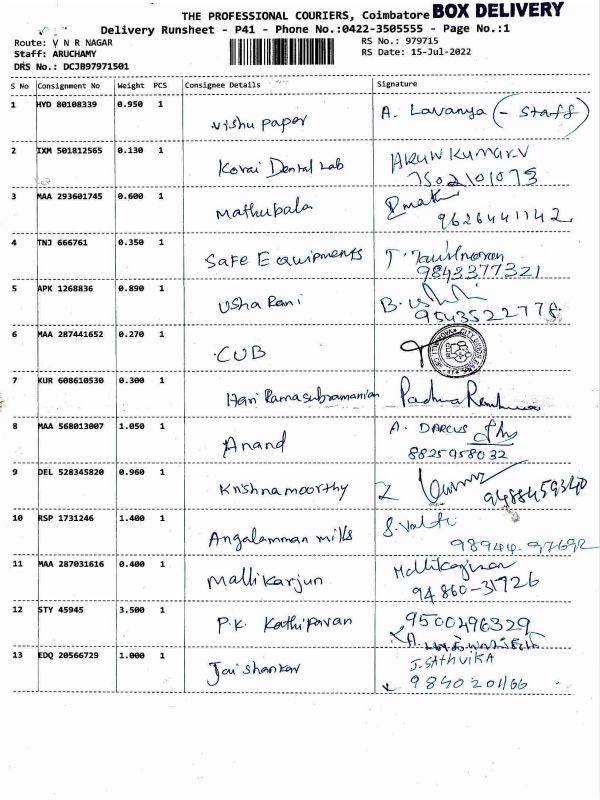 THE PROFESSIONAL COURIERS, Coimbatore BOX DELIVERY
Delivery Runsheet - P41 - Phone No.:0422-3505555 - Page No.:1
Route: V N R NAGAR RS No.: 979715
Staff: ARUCHAMY RS Date: 15-Jul-2022
DRS No.: DCJB97971501
S No Consignment No Weight PCS Consignee Details Signature
1 HYD 80108339 0.950 1 Vishu paper A. Lavanya (- Staff)
2 IXM 501812565 0.130 1 Kovai Dental Lab ARUN KUMAR.V
7502101073
3 MAA 293601745 0.600 1 Mathubala
9626441142
4 TNJ 666761 0.350 1 Safe Equipments T.
9843377321
5 APK 1268836 0.890 1 Usha Rani B. Ush
9543522778
6 MAA 287441652 0.270 1 CUB
7 KUR 608610530 0.300 1 Hari Ramasubramanian Padma
8 MAA 568013007 1.050 1 Anand A. DARCUS
8825958032
9 DEL 528345820 0.960 1 Krishnamoorthy
9488459340
10 RSP 1731246 1.400 1 Angalamman mills
98944-97692
11 MAA 287031616 0.400 1 Mallikarjun Mallikarjunan
94860-31726
12 STY 45945 3.500 1 P.K. Kathiravan 9500496329
13 EDQ 20566729 1.000 1 Jaishankar J. SATHVIKA
9840201166